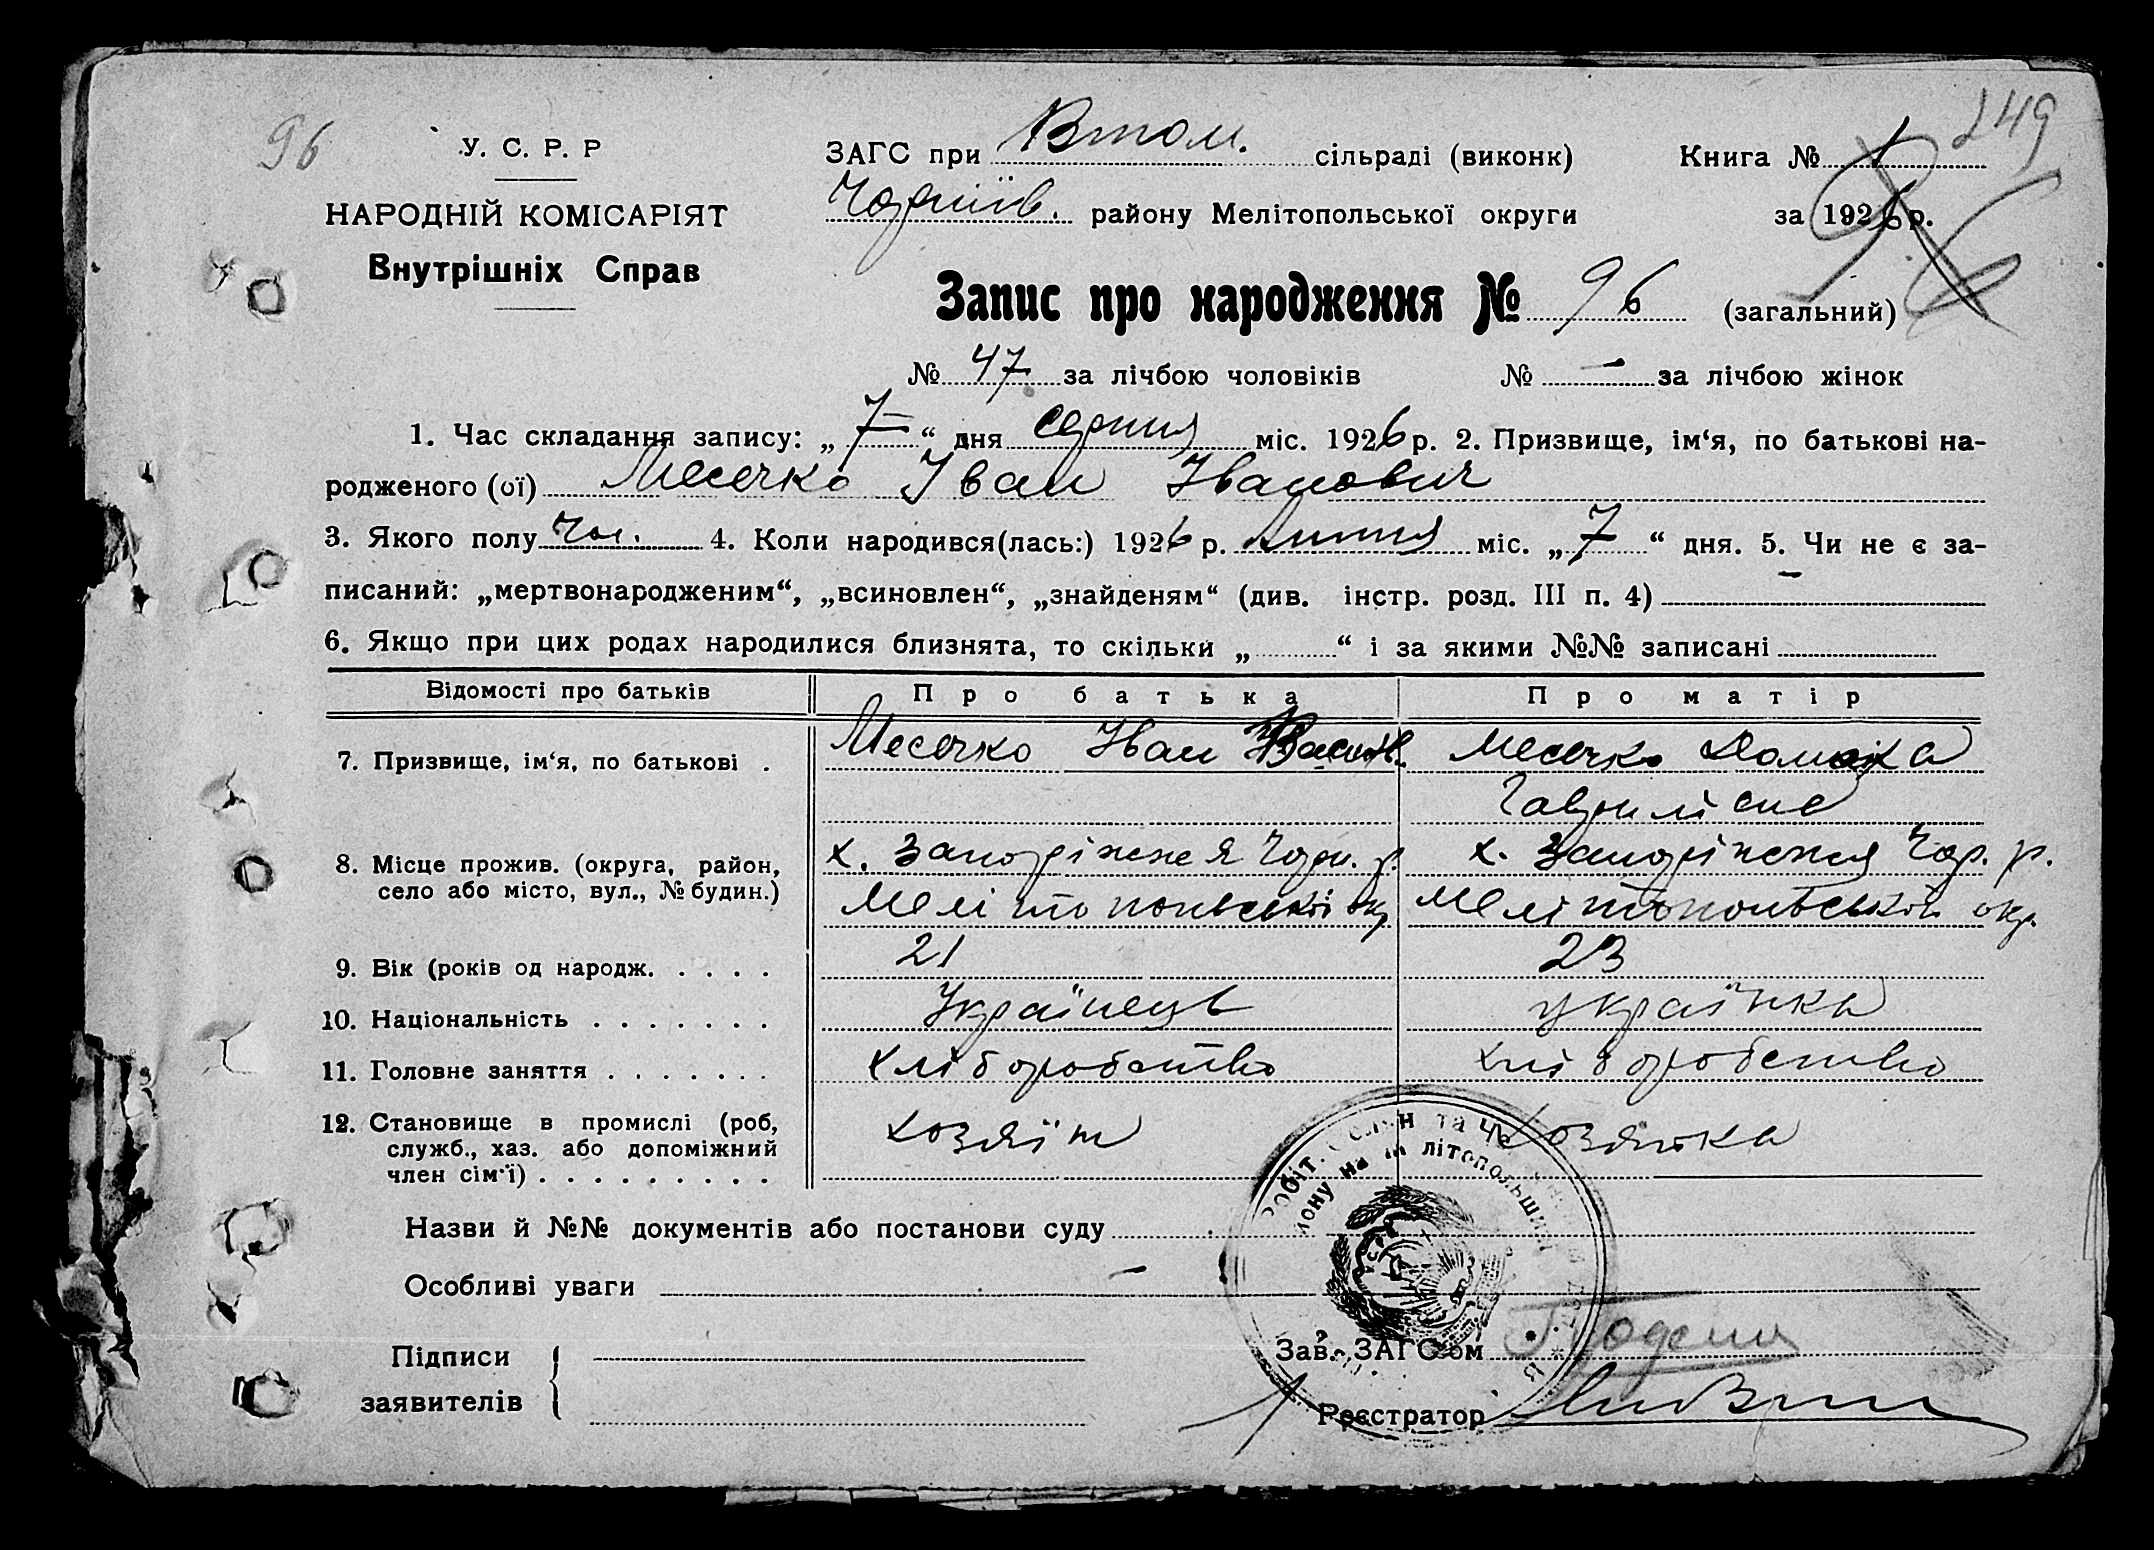 96
249
У. С. Р. Р
НАРОДНІЙ КОМІСАРІЯТ
Внутрішніх Справ
ЗАГС при Втом. сільраді (виконк)
Книга № 1
район Мелітопольської округи
за 1926 р.
96
Запис про народження № 96 (загальний)
№ 47 за лічбою чоловіків № – за лічбою жінок
1. Час складання запису: „ 7 “ дня серпня міс. 1926 р. 2. Призвище, ім‘я, по батькові на-
родженого (ої) Месечко Іван Іванович
3. Якого полу чол. 4. Коли народився(лась:) 1926 р. Липня міс. „ 7 “ дня. 5. Чи не є за-
писаний: „мертвонародженим“, „всиновлен“, „знайденям“ (див. інстр. розд. III п. 4) –
6. Якщо при цих родах народилися близнята, то скільки „ “ і за якими №№ записані
Відомості про батьків Про батька Про матір
7. Призвище, ім‘я, по батькові . Месечко Іван Месечко
Гаврилівна
8. Місце прожив. (округа, район, х. Запоріжжя Чорн. р. х. Запоріжжя Чор. р.
село або місто, вул., № будин.) Мелітопольської окр. Мелітопольської окр.
9. Вік (років од народж. . . . . 21 23
10. Національність . . . . . . . Українець українка
11. Головне заняття . . . . . . . хліборобство хліборобство
12. Становище в промислі (роб, хозяїн хозяйка
служб., хаз. або допоміжний
член сім‘ї) . . . . . . . . .
Назви й №№ документів або постанови суду
Особливі уваги –
Підписи
заявителів
Зав. ЗАГС‘ом
Реєстратор